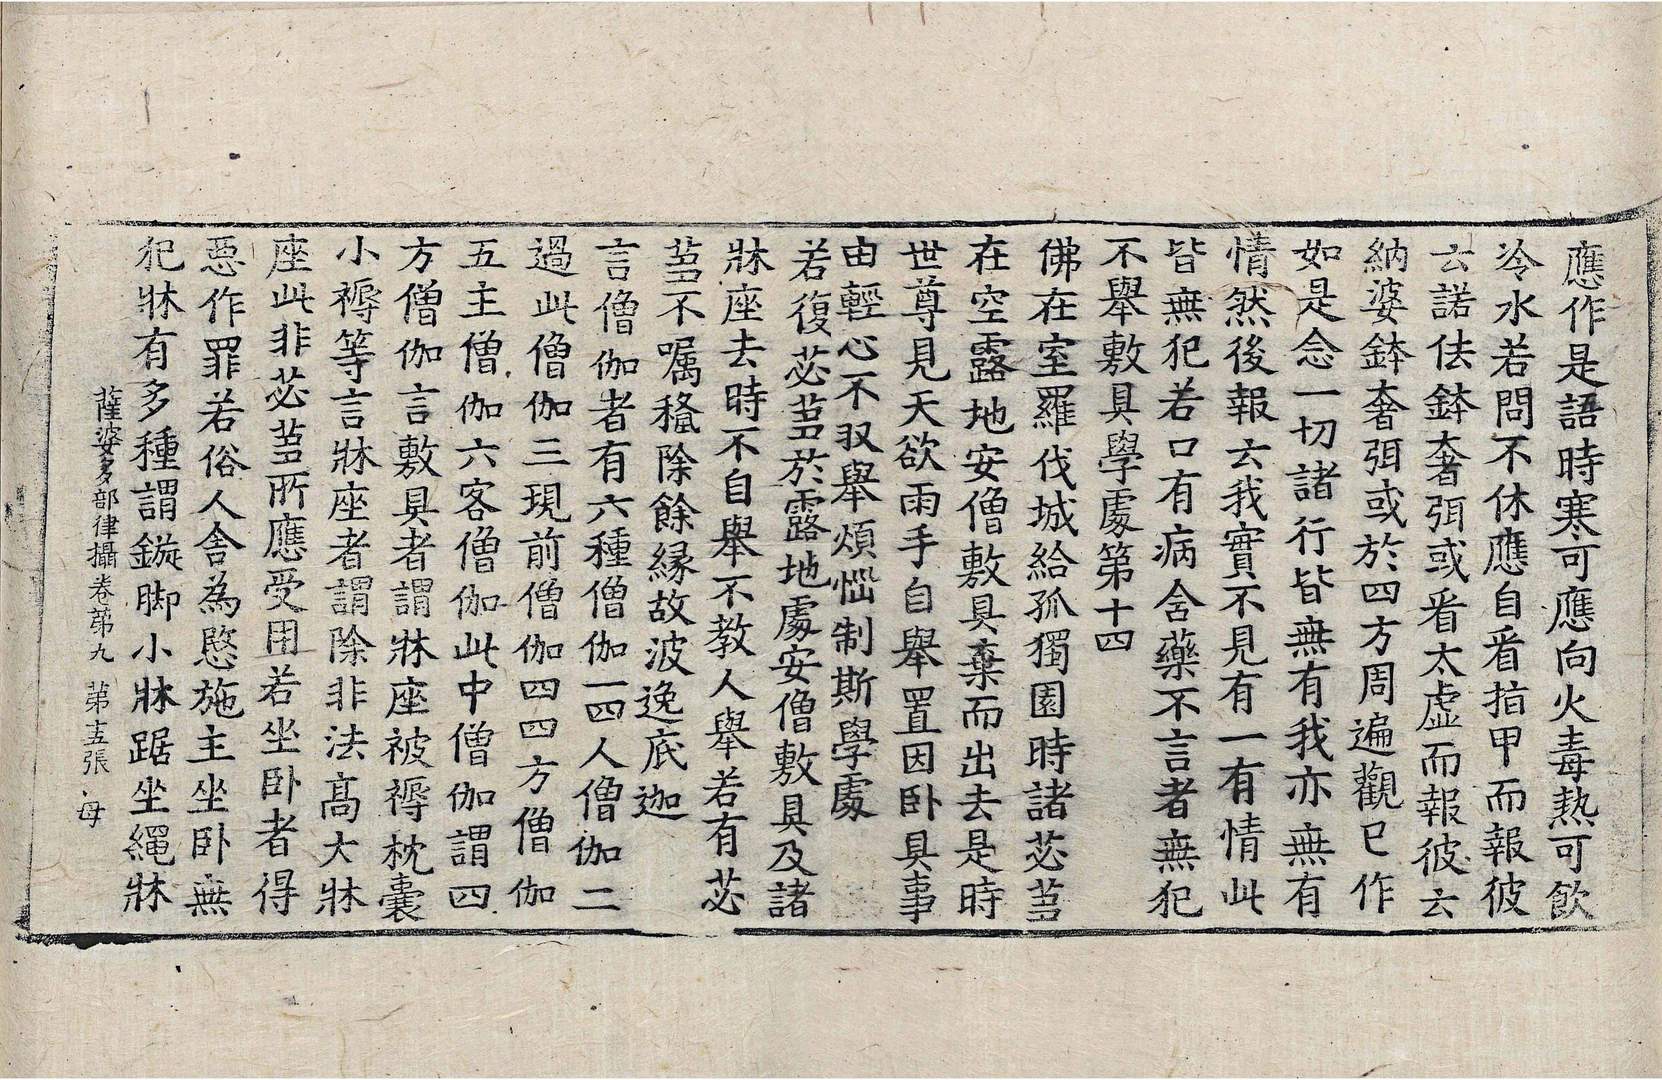 應作是語時寒可應向火毒熱可飲
冷水若問不休應自看指甲而報彼
云諾佉鉢奢弭或看太虛而報彼云
納婆鉢奢弭或於四方周遍觀已作
如是念一切諸行皆無有我亦無有
情然後報云我實不見有一有情此
皆無犯若口有病舍藥不言者無犯
不舉敷具學處第十四
佛在室羅伐城給孤獨園時諸苾芻
在空露地安僧敷具棄而出去是時
世尊見天欲雨手自舉置因卧具事
由輕心不収舉煩惱制斯學處
若復苾芻於露地處安僧敷具及諸
牀座去時不自舉不教人舉若有苾
芻不囑授除餘緣故波逸底迦
言僧伽者有六種僧伽一四人僧伽二
過此僧伽三現前僧伽四四方僧伽
五主僧伽六客僧伽此中僧伽謂四
方僧伽言敷具者謂牀座被褥枕囊
小褥等言牀座者謂除非法高大牀
座此非苾芻所應受用若坐卧者得
惡作罪若俗人舍為愍施主坐卧無
犯牀有多種謂鏇脚小牀踞坐繩牀
薩婆多部律攝卷苐九 苐十五張 母